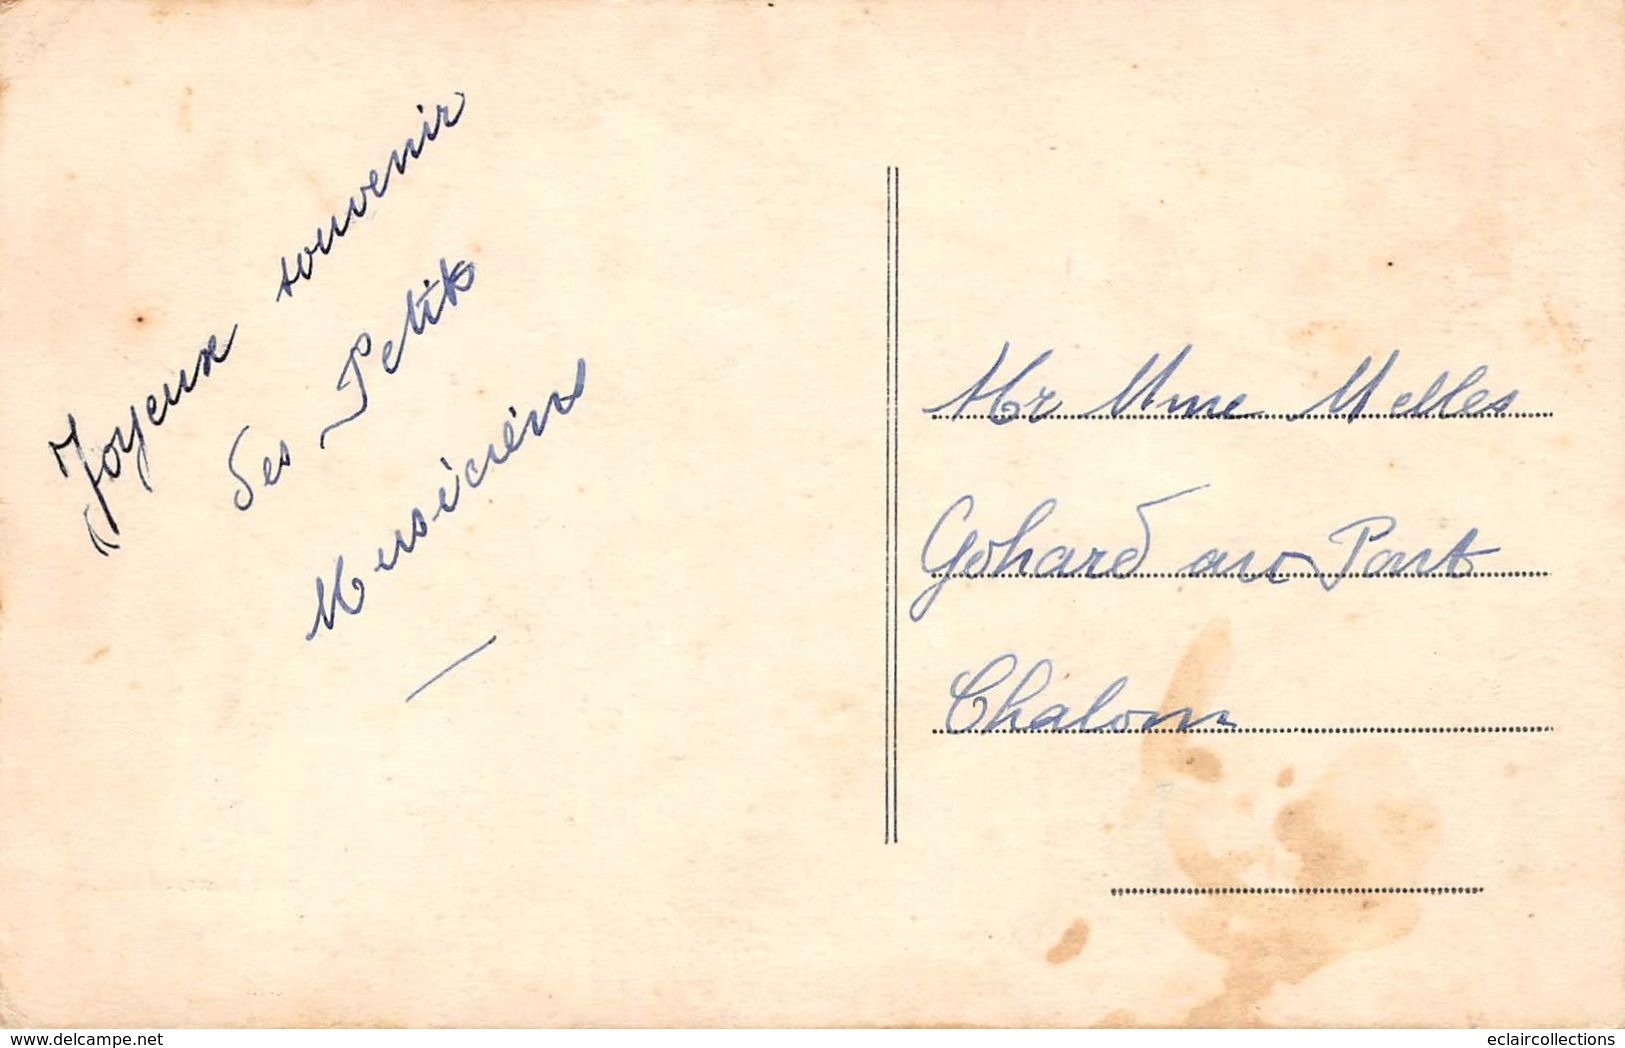 Joyeux souvenir
des Petits
Musiciens
Mr Mme Melles
Gohard au Pont
Chalon
www.delcampe.net
eclaircollections